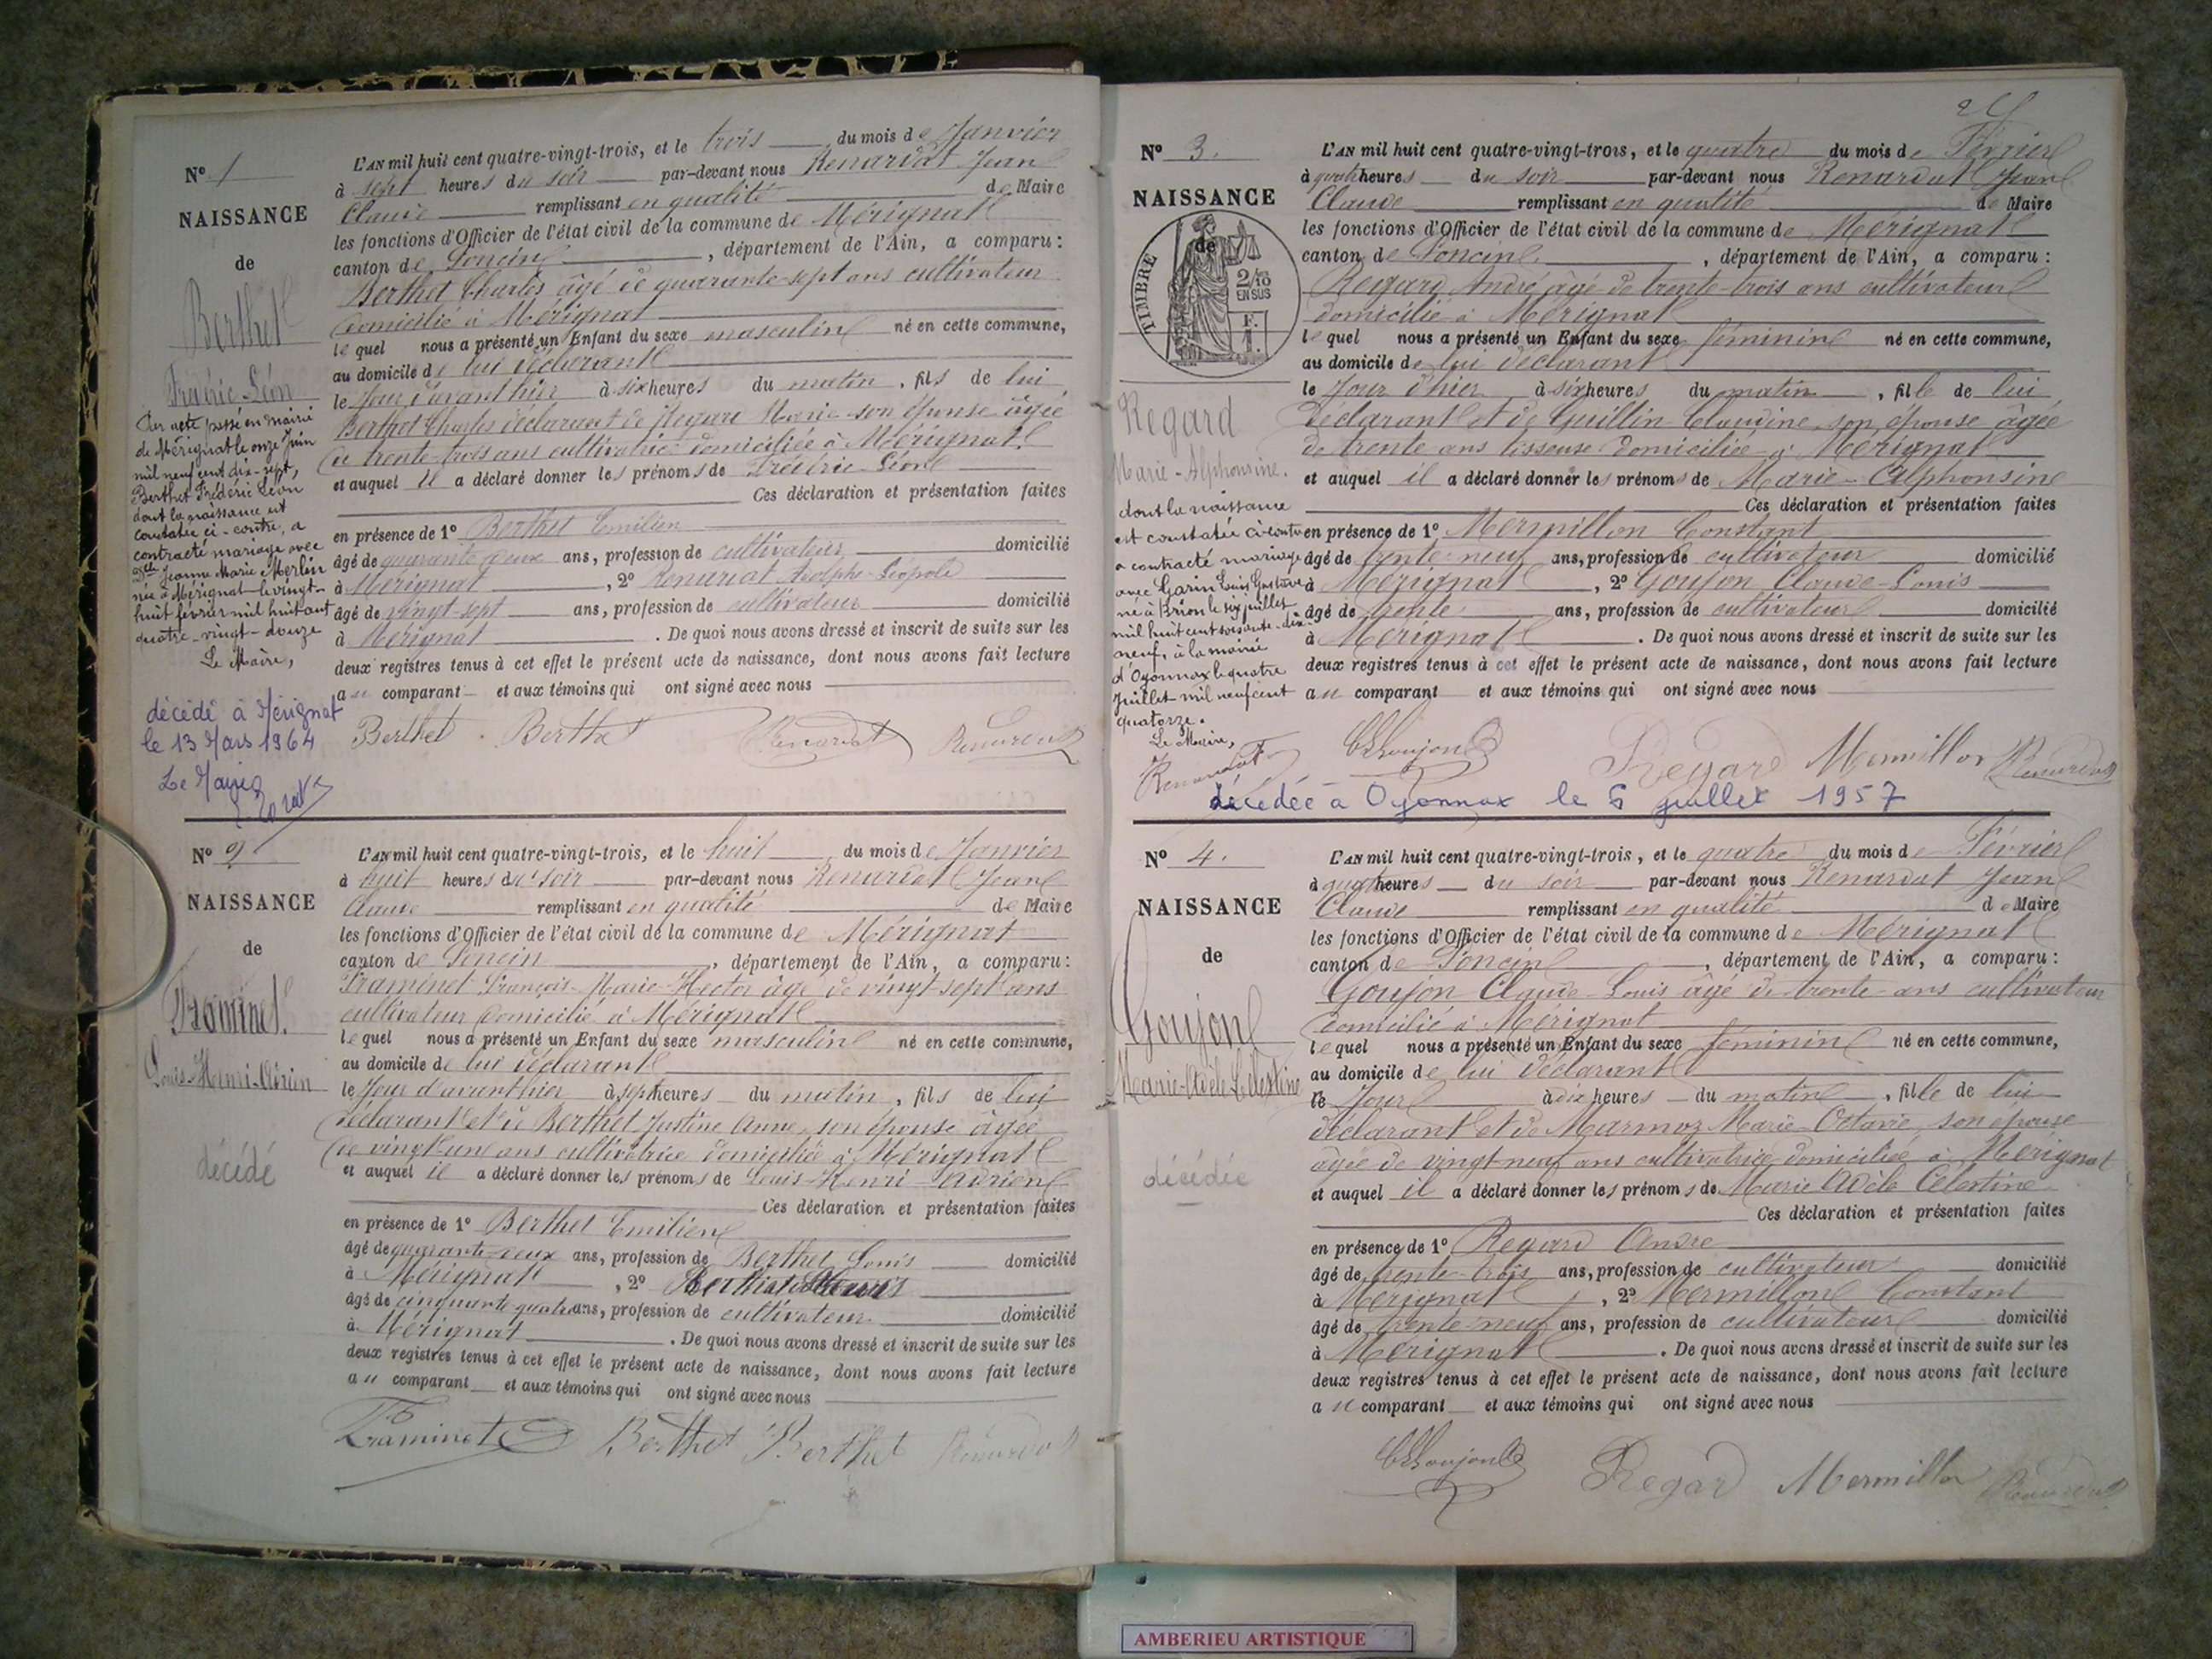 Nº 1
NAISSANCE
de
Berthet
Frédéric-Léon
Par acte passé en mairie
de Mérignat le onze Juin
mil neuf cent dix-sept,
Berthet Frédéric Léon
dont la naissance est
constatée ci-contre, a
contracté mariage avec
Delle Jeanne Marie Merlin
née à Mérignat le vingt-
huit février mil huit cent
quatre-vingt-douze
Le Maire,
décédé à Mérignat
le 13 Mars 1964
Le Maire
L'AN mil huit cent quatre-vingt-trois, et le trois du mois de Janvier
à sept heures du soir par-devant nous Renardat Jean
Claude remplissant en qualité de Maire
les fonctions d'Officier de l'état civil de la commune de Mérignat
canton de Poncin, département de l'Ain, a comparu:
Berthet Charles âgé de quarante-sept ans cultivateur
domicilié à Mérignat
lequel nous a présenté un Enfant du sexe masculin né en cette commune,
au domicile de lui déclarant
le Jour d'avant hier à six heures du matin, fils de lui
Berthet Charles déclarant et de Regard Marie son épouse âgée
de trente-trois ans cultivatrice domiciliée à Mérignat
et auquel il a déclaré donner les prénoms de Frédéric-Léon
Ces déclaration et présentation faites
en présence de 1º Berthet Emilien
âgé de quarante deux ans, profession de cultivateur domicilié
à Mérignat, 2º Renardat Adolphe-Léopold
âgé de vingt-sept ans, profession de cultivateur domicilié
à Mérignat. De quoi nous avons dressé et inscrit de suite sur les
deux registres tenus à cet effet le présent acte de naissance, dont nous avons fait lecture
au comparant et aux témoins qui ont signé avec nous
Berthet Berthet Renardat Renardat
Nº 2
NAISSANCE
de
Traminet
Louis-Henri-Adrien
décédé
L'AN mil huit cent quatre-vingt-trois, et le huit du mois de Janvier
à huit heures du soir par-devant nous Renardat Jean
Claude remplissant en qualité de Maire
les fonctions d'Officier de l'état civil de la commune de Mérignat
canton de Poncin, département de l'Ain, a comparu:
Traminet François-Marie-Hector âgé de vingt-sept ans
cultivateur domicilié à Mérignat
lequel nous a présenté un Enfant du sexe masculin né en cette commune,
au domicile de lui déclarant
le Jour d'avant hier à sept heures du matin, fils de lui
déclarant et de Berthet Justine Anne, son épouse âgée
de vingt-un ans cultivatrice domiciliée à Mérignat
et auquel il a déclaré donner les prénoms de Louis-Henri-Adrien
Ces déclaration et présentation faites
en présence de 1º Berthet Emilien
âgé de quarante-deux ans, profession de Berthet Louis domicilié
à Mérignat, 2º
âgé de cinquante quatre ans, profession de cultivateur domicilié
à Mérignat. De quoi nous avons dressé et inscrit de suite sur les
deux registres tenus à cet effet le présent acte de naissance, dont nous avons fait lecture
au comparant et aux témoins qui ont signé avec nous
Traminet Berthet Berthet Renardat
Nº 3.
NAISSANCE
de
TIMBRE
2/10
EN SUS
F.
1.
Regard
Marie-Alphonsine.
dont la naissance
est constatée ci-contre
a contracté mariage
avec Garin Louis Gustave
né à Brion le six juillet
mil huit cent soixante-dix
neuf, à la mairie
d'Oyonnax le quatre
Juillet mil neuf cent
quatorze.
Le Maire,
Renardat
L'AN mil huit cent quatre-vingt-trois, et le quatre du mois de Février
à quatre heures du soir par-devant nous Renardat Jean
Claude remplissant en qualité de Maire
les fonctions d'Officier de l'état civil de la commune de Mérignat
canton de Poncin, département de l'Ain, a comparu:
Regard André âgé de trente-trois ans cultivateur
domicilié à Mérignat
lequel nous a présenté un Enfant du sexe féminin né en cette commune,
au domicile de lui déclarant
le Jour d'hier à six heures du matin, fille de lui
déclarant et de Guillin Claudine son épouse âgée
de trente ans tisseuse domiciliée à Mérignat
et auquel il a déclaré donner les prénoms de Marie-Alphonsine
Ces déclaration et présentation faites
en présence de 1º Mermillon Constant
âgé de trente-neuf ans, profession de cultivateur domicilié
à Mérignat, 2º Goujon Claude-Louis
âgé de trente ans, profession de cultivateur domicilié
à Mérignat. De quoi nous avons dressé et inscrit de suite sur les
deux registres tenus à cet effet le présent acte de naissance, dont nous avons fait lecture
au comparant et aux témoins qui ont signé avec nous
CLGoujon Regard Mermillon Renardat
décédée à Oyonnax le 6 juillet 1957
Nº 4.
NAISSANCE
de
Goujon
Marie-Adèle Célestine
décédée
L'AN mil huit cent quatre-vingt-trois, et le quatre du mois de Février
à quatre heures du soir par-devant nous Renardat Jean
Claude remplissant en qualité de Maire
les fonctions d'Officier de l'état civil de la commune de Mérignat
canton de Poncin, département de l'Ain, a comparu:
Goujon Claude-Louis âgé de trente ans cultivateur
domicilié à Mérignat
lequel nous a présenté un Enfant du sexe féminin né en cette commune,
au domicile de lui déclarant
le Jour à dix heures du matin, fille de lui
déclarant et de Marmoz Marie-Octavie, son épouse
âgée de vingt-neuf ans cultivatrice domiciliée à Mérignat
et auquel il a déclaré donner les prénoms de Marie Adèle Célestine
Ces déclaration et présentation faites
en présence de 1º Regard André
âgé de trente-trois ans, profession de cultivateur domicilié
à Mérignat, 2º Mermillon Constant
âgé de trente-neuf ans, profession de cultivateur domicilié
à Mérignat. De quoi nous avons dressé et inscrit de suite sur les
deux registres tenus à cet effet le présent acte de naissance, dont nous avons fait lecture
au comparant et aux témoins qui ont signé avec nous
CLGoujon Regard Mermillon Renardat
AMBERIEU ARTISTIQUE